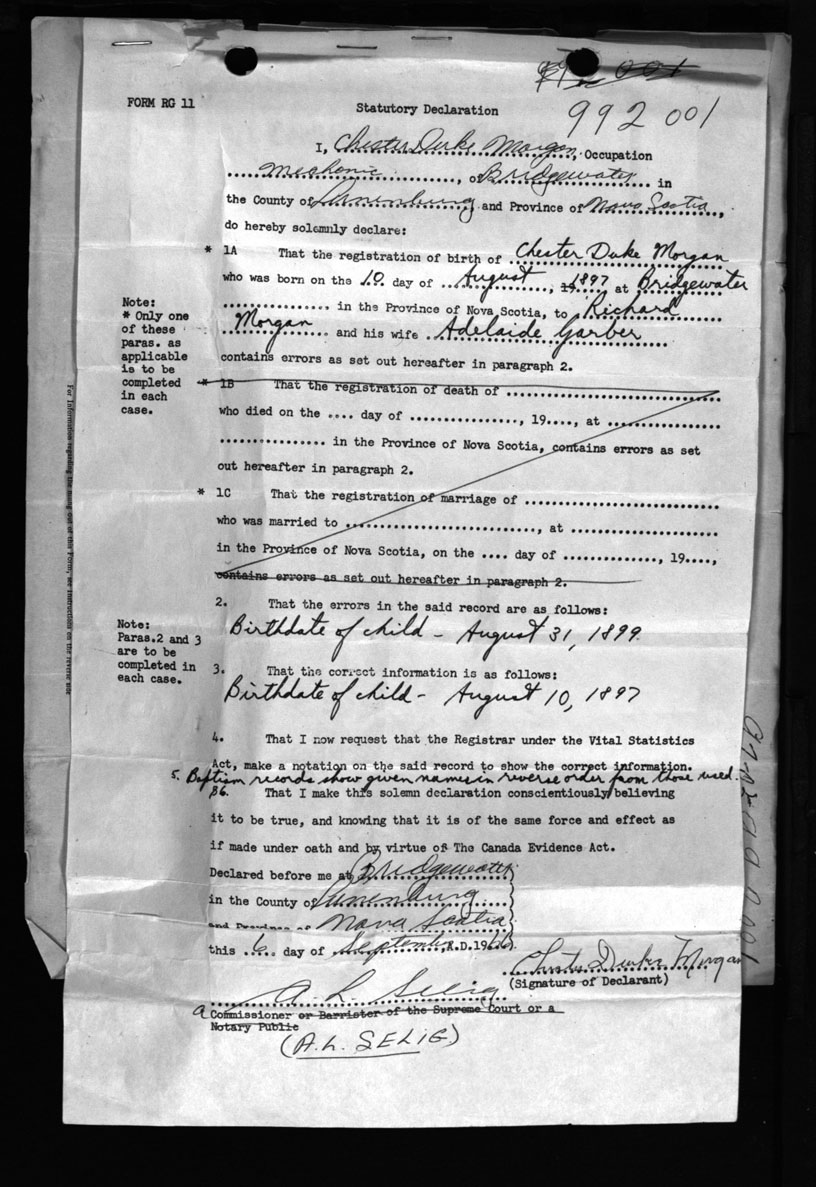 992 001
FORM RG 11
Statutory Declaration
992 001
I, Chester Duke Morgan, Occupation
mechanic, of Bridgewater in
the County of Lunenburg and Province of Nova Scotia,
do hereby solemnly declare:
* 1A That the registration of birth of Chester Duke Morgan
who was born on the 10 day of August, 19 1897, at Bridgewater
in the Province of Nova Scotia, to Richard
Morgan and his wife Adelaide Garber
contains errors as set out hereafter in paragraph 2.
Note:
* Only one
of these
paras. as
applicable
is to be
completed
in each
case.
* 1B That the registration of death of ....................
who died on the .... day of ................, 19...., at ................
................ in the Province of Nova Scotia, contains errors as set
out hereafter in paragraph 2.
* 1C That the registration of marriage of ....................
who was married to ............................, at ....................
in the Province of Nova Scotia, on the .... day of .............., 19....,
contains errors as set out hereafter in paragraph 2.
2. That the errors in the said record are as follows:
Birthdate of child - August 31, 1899.
Note:
Paras.2 and 3
are to be
completed in
each case.
3. That the correct information is as follows:
Birthdate of child - August 10, 1897
4. That I now request that the Registrar under the Vital Statistics
Act, make a notation on the said record to show the correct information.
5. Baptism records show given names in reverse order from those used.
6. That I make this solemn declaration conscientiously believing
it to be true, and knowing that it is of the same force and effect as
if made under oath and by virtue of The Canada Evidence Act.
Declared before me at Bridgewater
in the County of Lunenburg
and Province of Nova Scotia
this 6 day of September, A.D. 1966
Chester Duke Morgan
(Signature of Declarant)
A. L. Selig
a Commissioner or Barrister of the Supreme Court or a
Notary Public
(A.L. SELIG)
For Information regarding the using out of this Form, see instructions on the reverse side